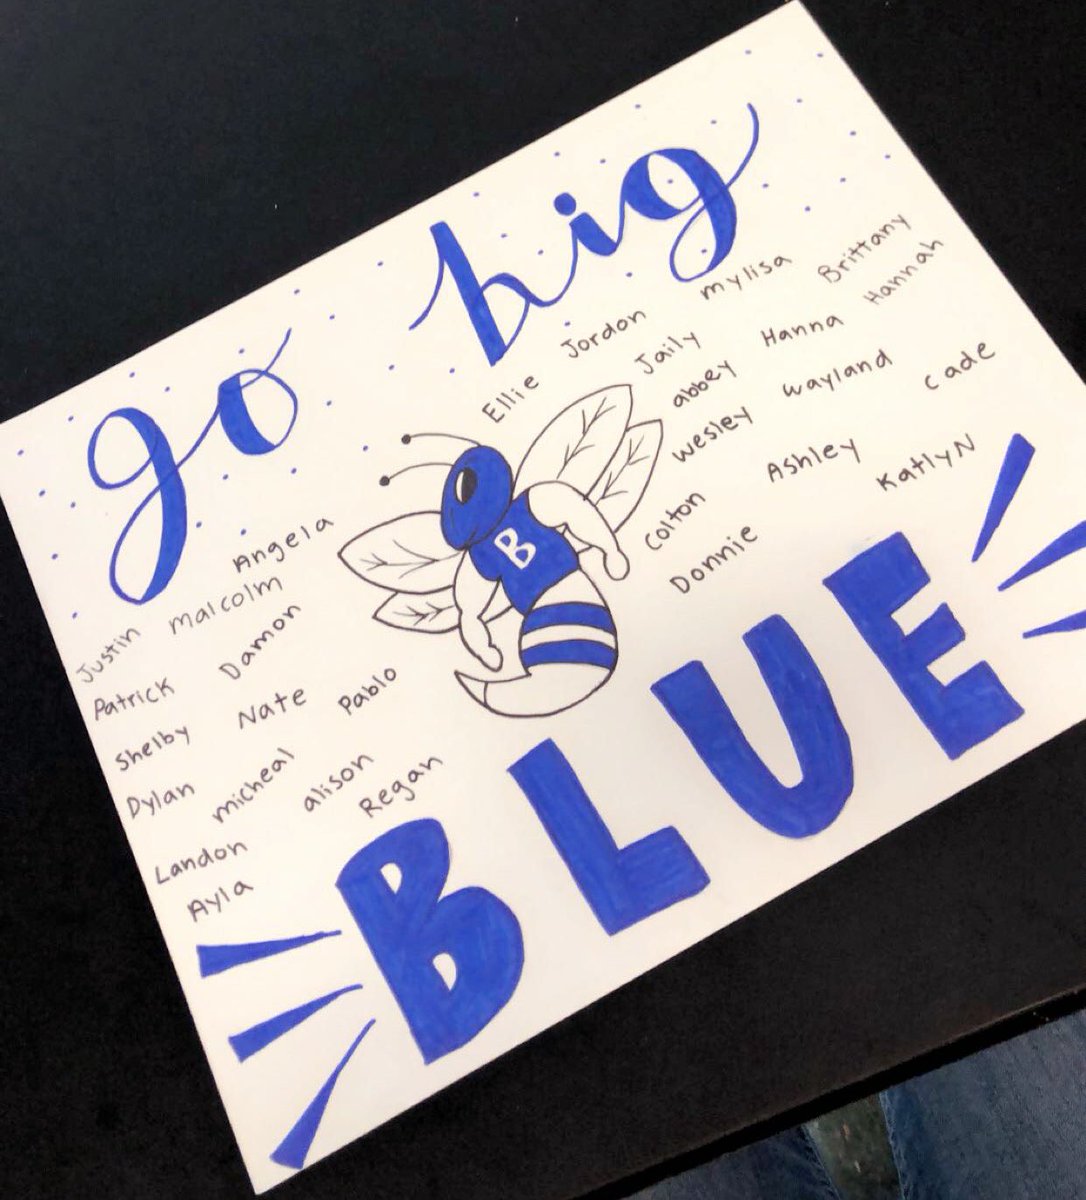 go big
Ellie Jordon mylisa Brittany
Jaily Hanna Hannah
abbey wayland cade
wesley Ashley KatlyN
Colton
Donnie
B
Angela
Justin malcolm
Patrick Damon
Shelby Nate Pablo
Dylan micheal alison
Landon Regan
Ayla
BLUE